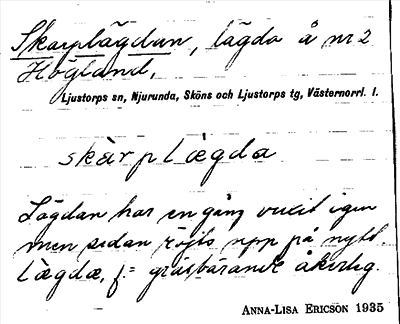 Skarplägdan, lägda å nr 2
Högland,
Ljustorps sn, Njurunda, Sköns och Ljustorps tg, Västernorrl. l.
skàrplægda
Lägdan har en gång vuxit igen
men sedan röjts upp på nytt.
lægdæ, f = gräsbärande åkerteg.
ANNA-LISA ERICSON 1935